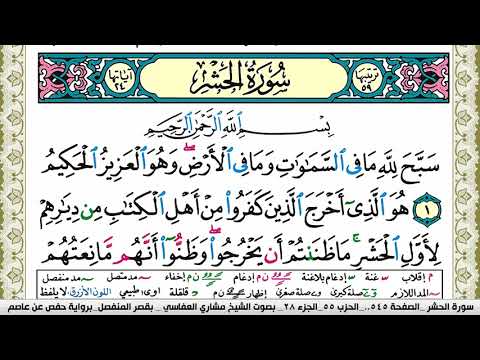 ترتيبها ٥٩ سُورَةُ الحَشْرِ آياتها ٢٤
بِسْمِ اللَّهِ الرَّحْمَٰنِ الرَّحِيمِ
سَبَّحَ لِلَّهِ مَا فِي السَّمَاوَاتِ وَمَا فِي الْأَرْضِ ۖ وَهُوَ الْعَزِيزُ الْحَكِيمُ
١ هُوَ الَّذِي أَخْرَجَ الَّذِينَ كَفَرُوا مِنْ أَهْلِ الْكِتَابِ مِن دِيَارِهِمْ
لِأَوَّلِ الْحَشْرِ ۚ مَا ظَنَنتُمْ أَن يَخْرُجُوا ۖ وَظَنُّوا أَنَّهُم مَّانِعَتُهُمْ
م إقلاب غنة إدغام بلاغنة إدغام إخفاء مد متصل مد منفصل
المد اللازم صلة كبرى صلة صغرى إظهار قلقلة ا و ى: طبيعي اللون الأزرق: لا يلفظ
سورة الحشر _الصفحة ٥٤٥.. _الحزب ٥٥ _الجزء ٢٨ _ بصوت الشيخ مشاري العفاسي _ بقصر المنفصل_ برواية حفص عن عاصم